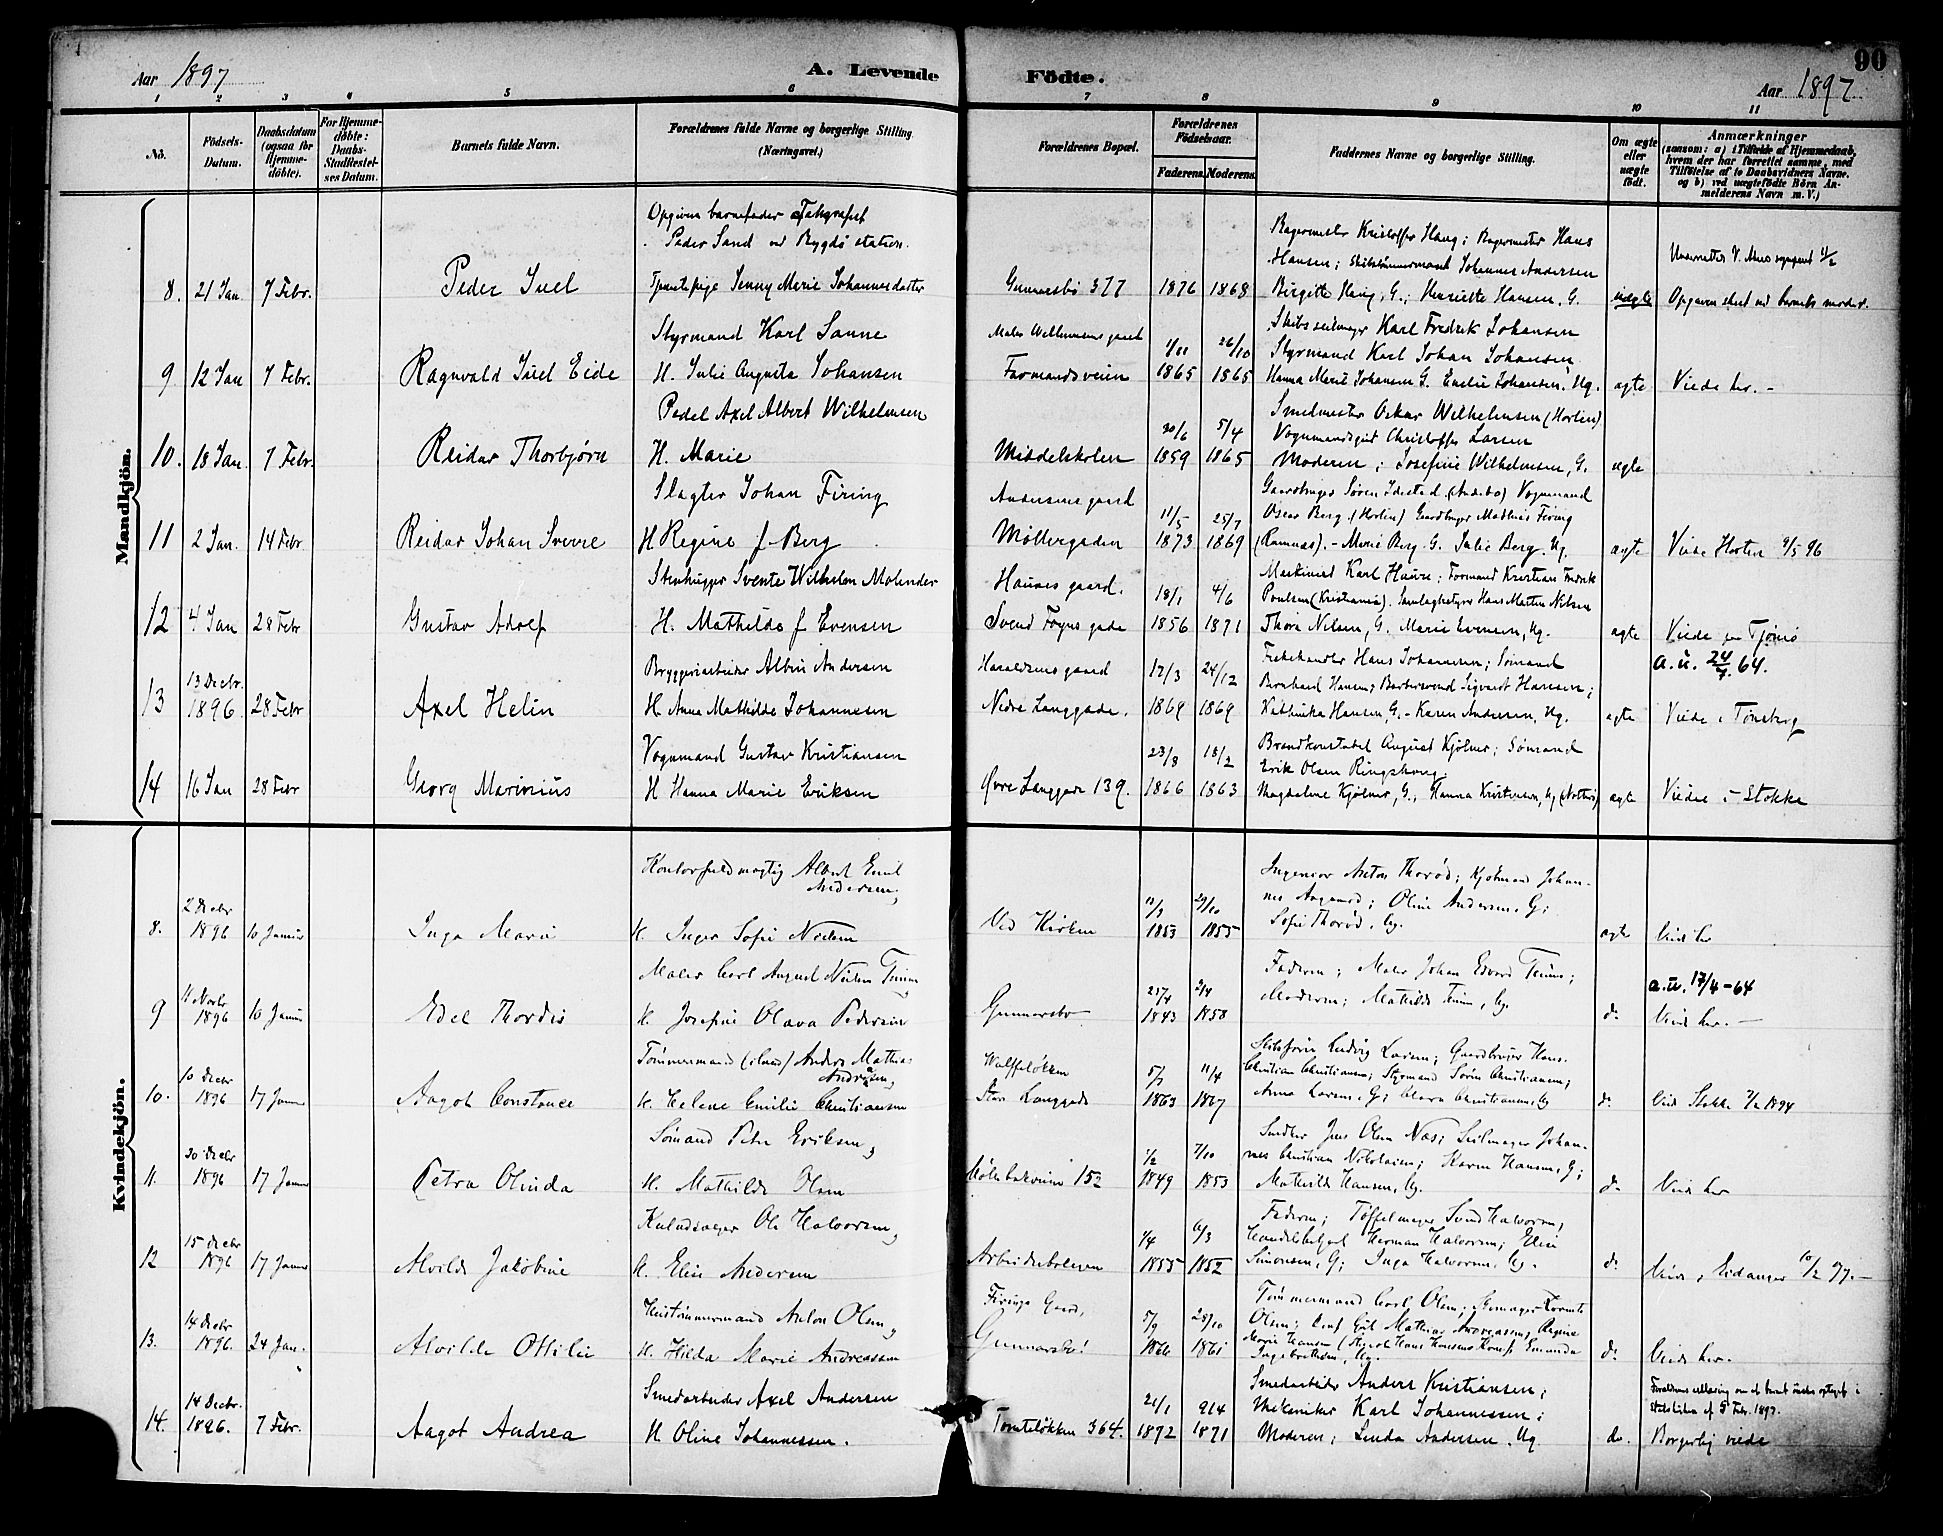 Aar 1897
A. Levende
Födte.
Aar 1897
90
1 2 3 4 5 6 7 8 9 10 11
No.
Födsels-
Datum.
Daabsdatum
(ogsaa for
Hjemme-
döbte).
For Hjemme-
döbte:
Daabs-
Stadfæstel-
ses Datum.
Barnets fulde Navn.
Forældrenes fulde Navne og borgerlige Stilling
(Næringsvei.)
Forældrenes Bopæl.
Forældrenes
Födselsaar.
Faderens. Moderens.
Faddernes Navne og borgerlige Stilling.
Om ægte
eller
uægte
födt.
Anmærkninger
(saasom: a) i Tilfælde af Hjemmedaab,
hvem der har forrettet samme, med
Tilföielse af to Daabsvidners Navne.
og b) ved uægtefödte Börn An-
melderens Navn m. V.)
Mandkjön.
Opgiven barnefader Telegrafist
Peder Sand ved Bygdö station.
Bagermester Kristoffer Haug; Bagermester Hans
Hansen; Skibstømmermand Johannes Andersen
8. 21 Jan 7 Febr. Peder Juel Tjenestepige Jenny Marie Johannesdatter Gunnarsbö 377 1876 1868 Birgitte Haug, G.; Henriette Hansen, G. uægte Opgaven skeet ved barnets moder.
Styrmand Karl Sanne
Skibsseilmager Karl Fredrik Johansen
1/11 26/10 Styrmand Karl Johan Johansen
9 12 Jan 7 Febr. Ragnvald Juel Eide H. Julie Augusta Johansen Farmandsveien 1865 1865 Hanna Marie Johansen G. Emilie Johansen. Ug. ægte Viede her. -
Pedel Axel Albert Wilhelmsen
Smedmester Oskar Wilhelmsen (Horten)
20/6 5/4 Vognmandsgut Christoffer Larsen
10. 18 Jan 7 Febr. Reidar Thorbjørn H. Marie Middelskolen 1859 1865 Moderen; Josefine Wilhelmsen, G. ægte
Slagter Johan Firing
Andersens gaard
11/5 25/7 Oscar Berg (Horten) Gaardbruger Mathias Firing
11 2 Jan. 14 Febr Reidar Johan Sverre H Regine f. Berg Møllergaden 1873 1869 (Ramnæs). - Marie Berg. G. Julie Berg. Ug. ægte Viede Horten 9/5 96
Stenhugger Svente Wilhelm Molander
Hauges gaard.
Maskinist Karl Hauge; Formand Kristian Fredrik
18/1 4/6 Poulsen (Kristiania). Hans Martin Nilsen
12 4 Jan 28 Febr Gustav Adolf H. Mathilde f Evensen Svend Foyns gade 1856 1871 Thora Nilsen, G. Marie Evensen, Ug. ægte Viede paa Tjømø
Bryggeriarbeider Albin Andersen
Haraldsens gaard
a.u. 24/4 64.
Fiskehandler Hans Johannesen; Sømand
13 Decbr. 17/3 24/12 Bernhard Hansen; Barbersvend Sigvart Hansen;
13 1896. 28 Febr Axel Helin H Anna Mathilde Johannesen Nedre Langgade. 1869 1869 Kathinka Hansen, G. - Karen Andersen, Ug. ægte Viede i Tønsberg
Vognmand Gustav Kristiansen
Brandkonstabel August Kjølner; Sømand
23/8 18/2 Erik Olsen Ringshaug.
14 16 Jan 28 Febr Georg Marinius H Hanna Marie Eriksen Øvre Langgade 139. 1866 1863 Magdalene Kjølner, G., Hanna Kristensen, Ug ægte Viede i Stokke
Kvindekjön.
Kontorfuldmægtig Albert Emil
Andersen,
Ingeniør Anton Thorød; Kjøbmand Johan-
nes Aagaard; Oline Andersen. G;
2 Decbr 11/3 29/10
8. 1896 10 Januar Inga Marie H. Inger Sofie Nielsen Ved Kirken 1853 1855 Sofie Thorød, Ug. ægte Viede her
Maler Carl August Nielsen Temm,
Faderen; Maler Johan Edvard Temm;
a.u. 17/4-64
11 Novbr 25/4 2/4
9 1896 10 Januar Edel Thordis H. Josefine Olava Pedersen Gunnarsbø 1843 1858 Moderen; Mathilde Temm, Ug. do Viede her. -
Tømmermand Anders Mathias
Andersen,
Ludvig Larsen; Gaardbruger Hans
10 Decbr Wulffeløkken 5/7 11/4 Christian Christiansen; Styrmand Søren Christiansen;
10. 1896 17 Januar Aagot Constance H. Helene Emilie Christiansen Store Langgade 1863 1867 Anna Larsen, G; Clara Christiansen, Ug do. Viede Stokke 1894
Sømand Peter Eriksen,
Snedker Jens Olsen Næs; Seilmager Johan-
20 Decbr 1/2 7/10 nes Christian Nikolaisen; Karen Hansen, G;
11. 1896 17 Januar Petra Olinda H. Mathilde Olsen Møllebakveien 152 1849 1853 Mathilde Hansen, Ug. do Viede her
Ole Halvorsen,
Faderen; Tøffelmager Svend Halvorsen,
15 Decbr 1/4 6/3 Herman Halvorsen; Elise
12 1896 17 Januar Alvilde Jakobine H. Elise Andersen Arbeiderboligen 1855 1852 Simonsen, G; Inga Halvorsen, Ug. do Viede i Eidanger 10/2 77. -
Hustømmermand Anton Olsen,
Firings Gaard,
Tømmermand Carl Olsen;
14 Decbr 5/9 28/10 Olsen; Mathias Andreassen; Regine
13. 1896. 24 Jan. Alvilde Ottilie H. Hilda Marie Andreassen Gunnarsbø 1866 1861 Marie Hansen do Viede her.
Smedarbeider Axel Andersen
Smedarbeider Anders Kristiansen;
14 Decbr. 21/1 9/4 Mekaniker Karl Johannessen;
14. 1896. 7 Febr. Aagot Andrea H Oline Johannessen. Tomteløkken 364. 1872 1871 Moderen; Linda Andersen. Ug. do. Borgerlig viede